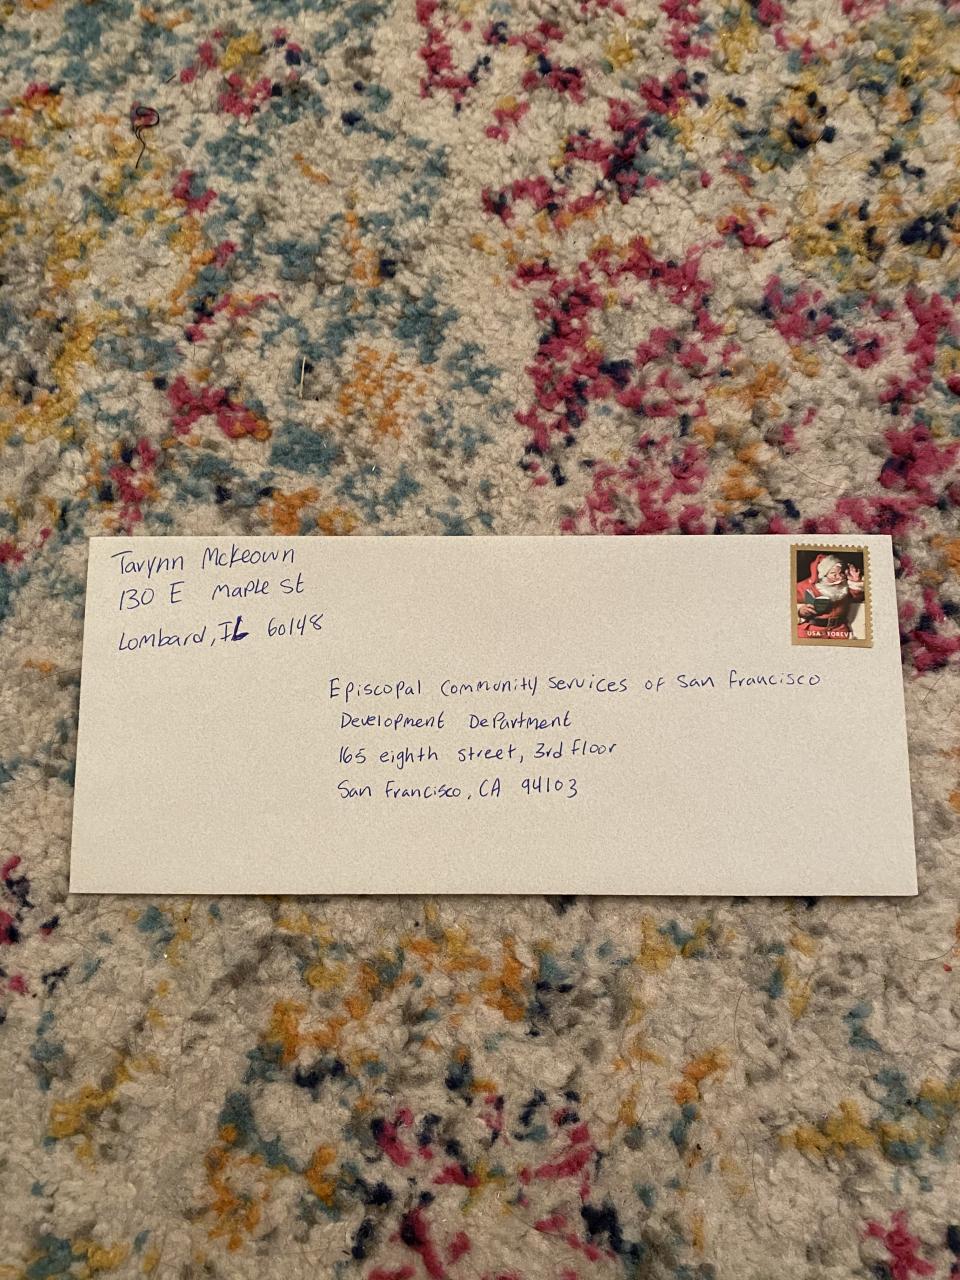 Tavynn McKeown
130 E Maple St
Lombard, IL 60148
USA FOREVE
Episcopal Community Services of San Francisco
Development Department
165 eighth street, 3rd floor
San Francisco, CA 94103